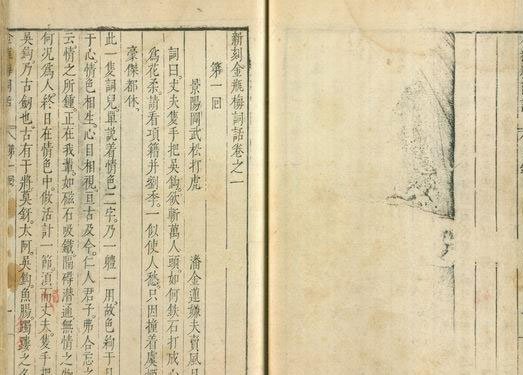 新刻金瓶梅詞話卷之一
第一回
景陽岡武松打虎　潘金蓮嫌夫賣風月
詞曰丈夫隻手把吳鈎、欲斬萬人頭、如何鐵石打成心
爲花柔、請看項籍并劉季、一似使人愁、只因撞着虞姬
豪傑都休、
此一隻詞兒、單說着情色二字、乃一體一用、故色絢于目
于心、情色相生、心目相視、亘古及今、仁人君子、弗合忘之
云、情之所鍾、正在我輩、如磁石吸鐵、隔碍潛通、無情之物
何況爲人、終日在情色中、做活計一節、須而丈夫隻手把
吳鈎、吳鈎乃古劍也、古有干將莫鋣、太阿、吳鈎、魚腸、之名
第一回